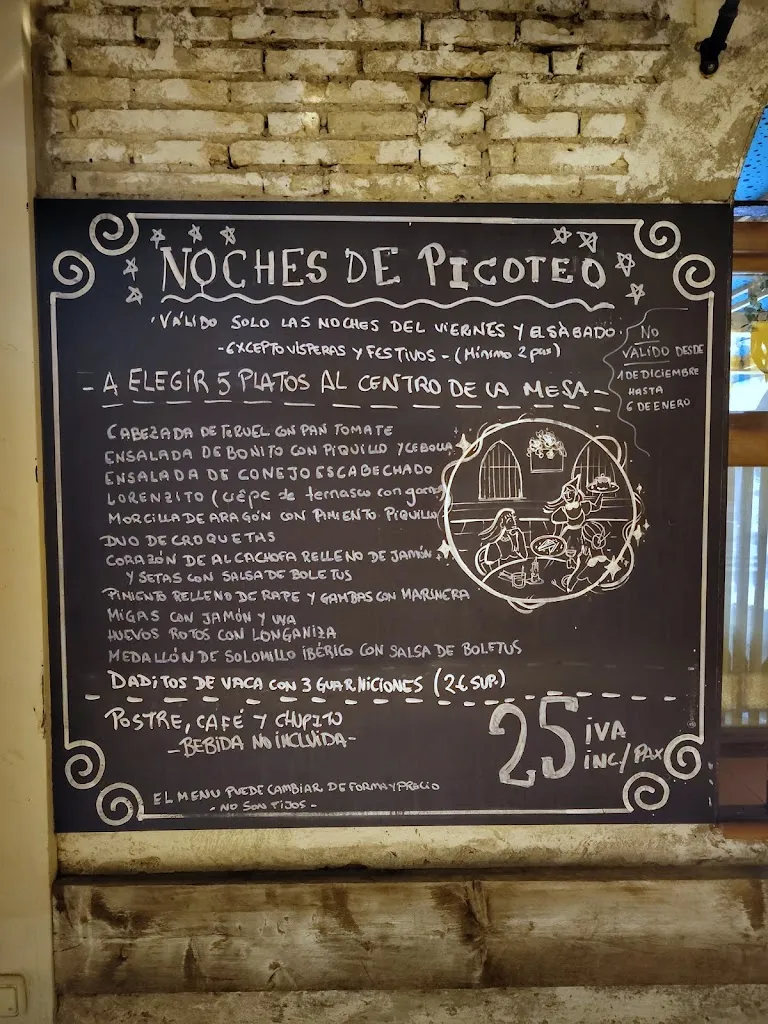 NOCHES DE PICOTEO
VÁLIDO SOLO LAS NOCHES DEL VIERNES Y EL SÁBADO
-EXCEPTO VÍSPERAS Y FESTIVOS- (Mínimo 2 pax)
NO
VALIDO DESDE
1 DE DICIEMBRE
HASTA
6 DE ENERO
- A ELEGIR 5 PLATOS AL CENTRO DE LA MESA -
CABEZADA DE TERUEL CON PAN TOMATE
ENSALADA DE BONITO CON PIQUILLO Y CEBOLLA
ENSALADA DE CONEJO ESCABECHADO
LORENZITO (crêpe de ternasco con
MORCILLA DE ARAGÓN CON PIMIENTO PIQUILLO
DUO DE CROQUETAS
CORAZÓN DE ALCACHOFA RELLENO DE JAMÓN
Y SETAS CON SALSA DE BOLETUS
PIMIENTO RELLENO DE RAPE Y GAMBAS CON MARINERA
MIGAS CON JAMÓN Y UVA
HUEVOS ROTOS CON LONGANIZA
MEDALLÓN DE SOLOMILLO IBÉRICO CON SALSA DE BOLETUS
DADITOS DE VACA CON 3 GUARNICIONES (2€ SUP.)
POSTRE, CAFÉ Y CHUPITO
-BEBIDA NO INCLUIDA-
25 IVA
INC/PAX
EL MENU PUEDE CAMBIAR DE FORMA Y PRECIO
- NO SON FIJOS -